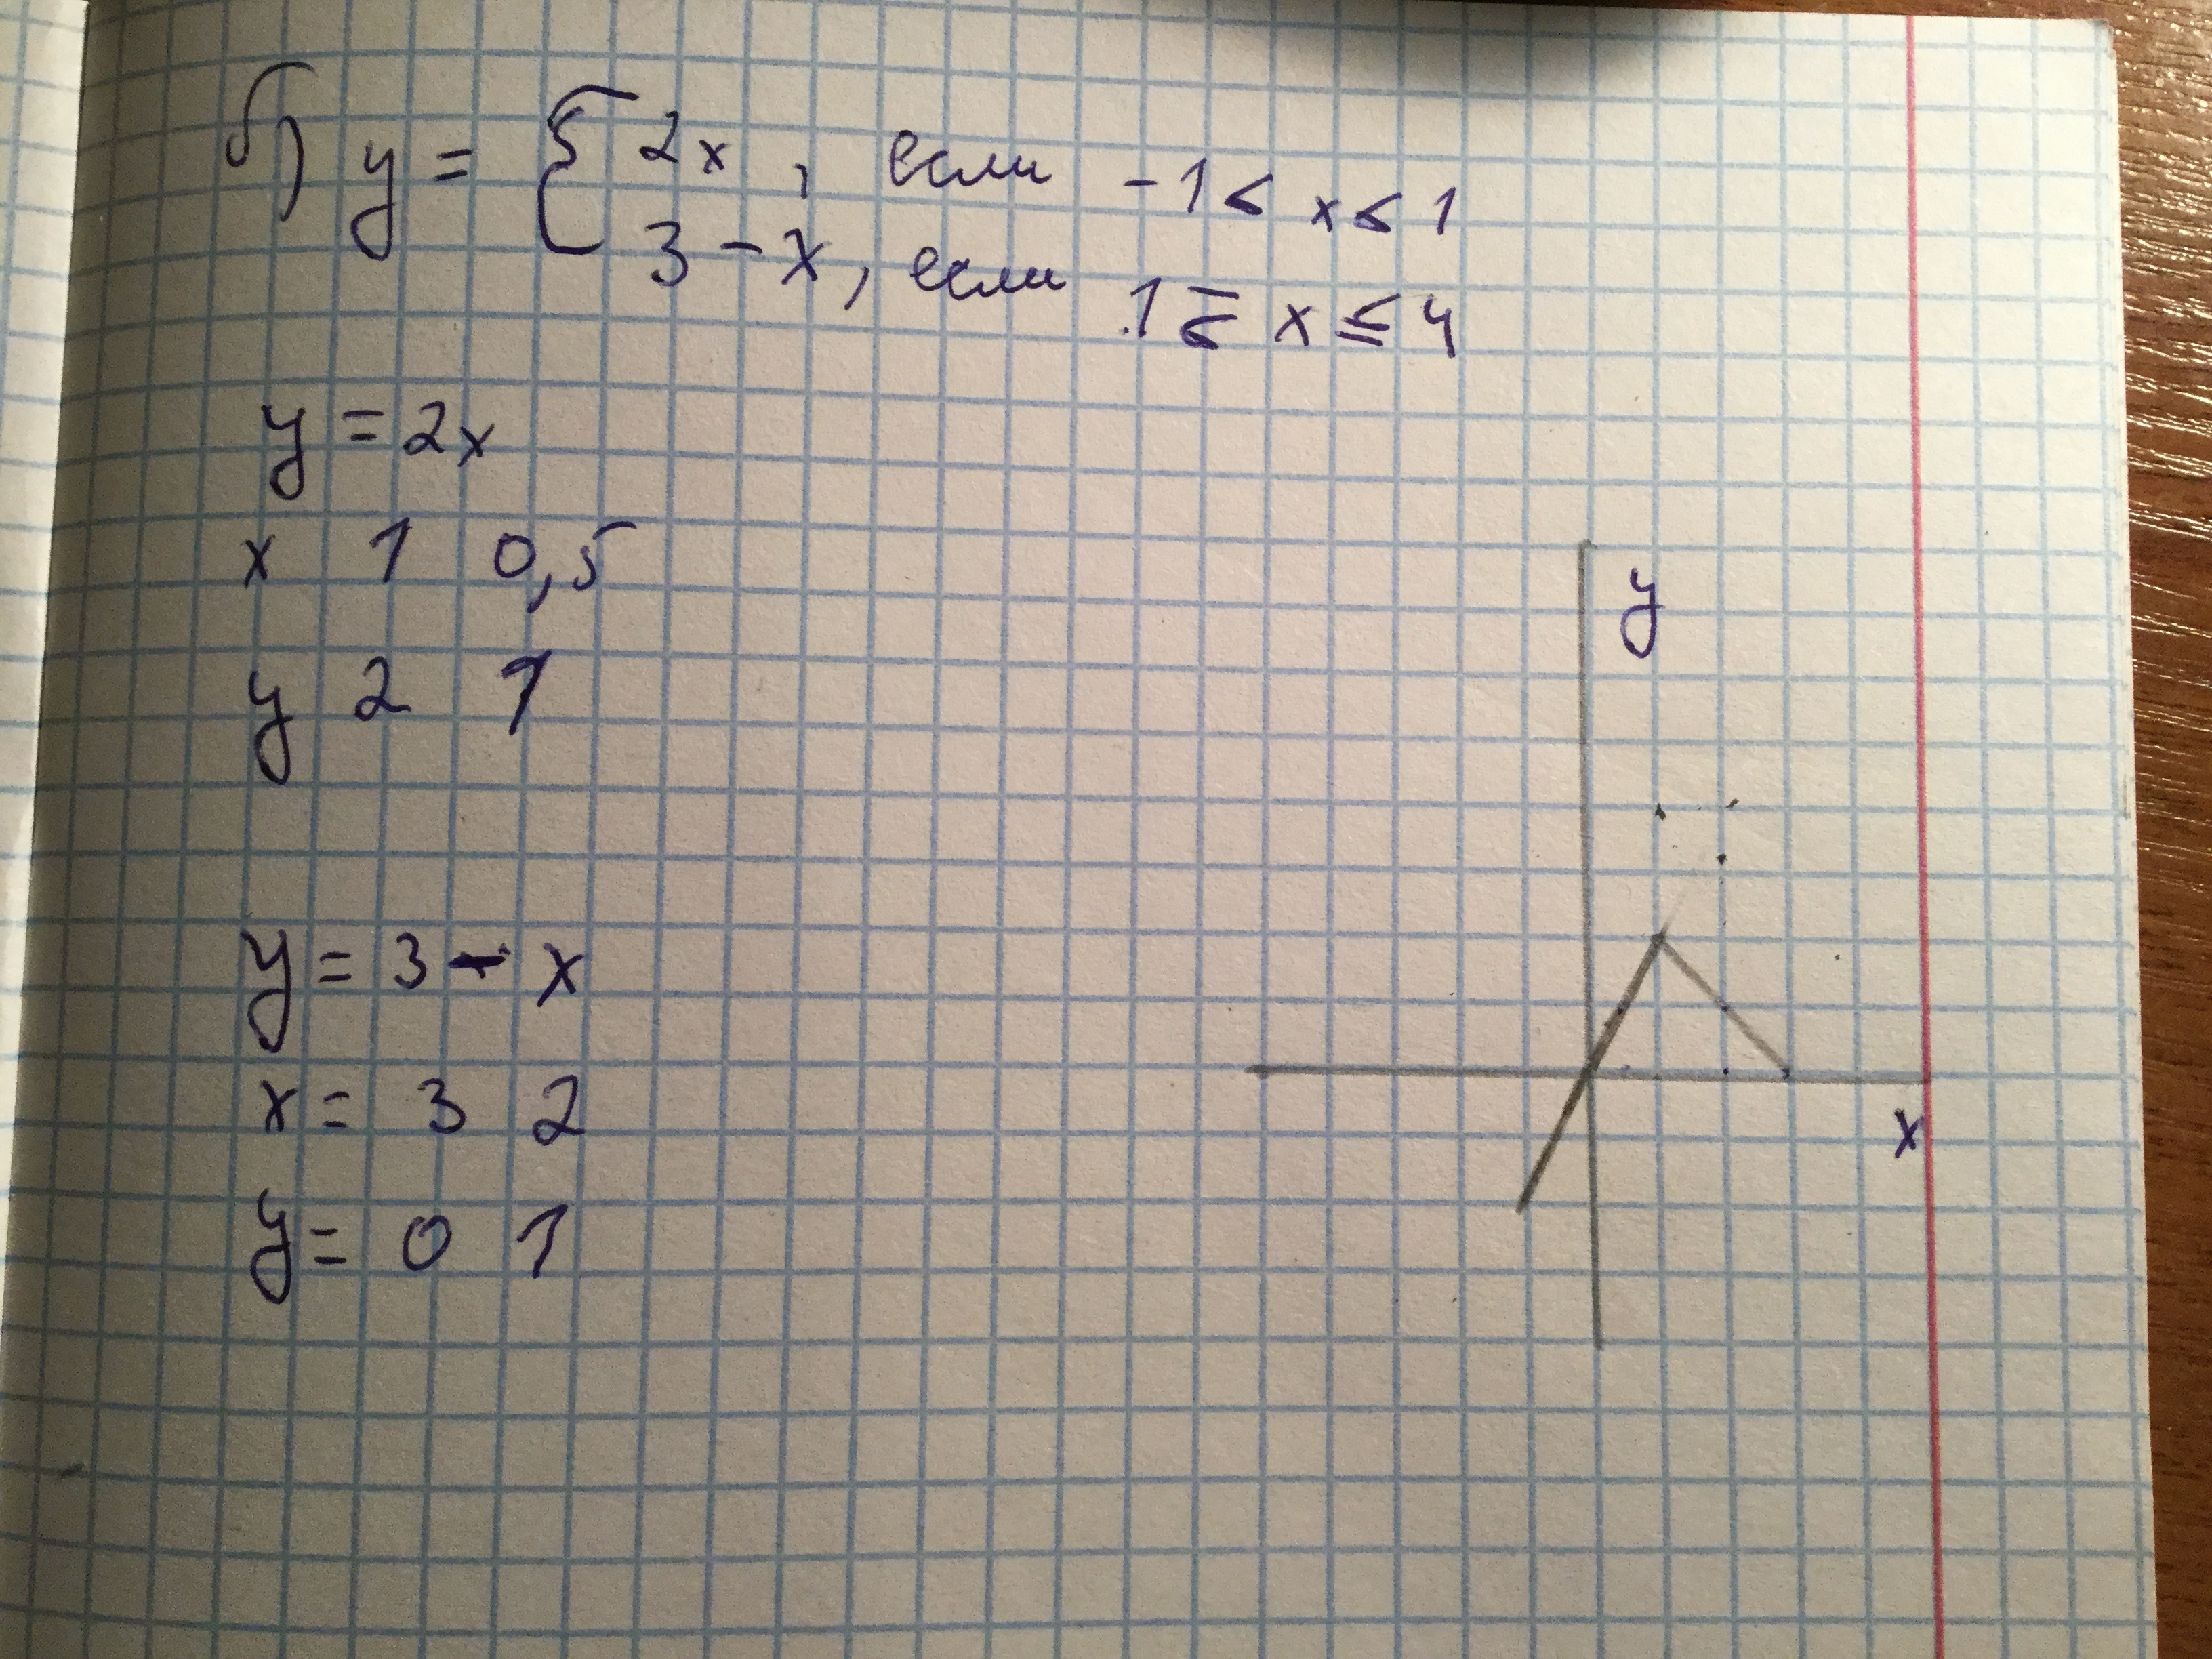 б) y = { 2x, если -1 ≤ x ≤ 1
3 - x, если 1 ≤ x ≤ 4
y = 2x
x 1 0,5
y 2 1
y = 3 - x
x = 3 2
y = 0 1
y
x